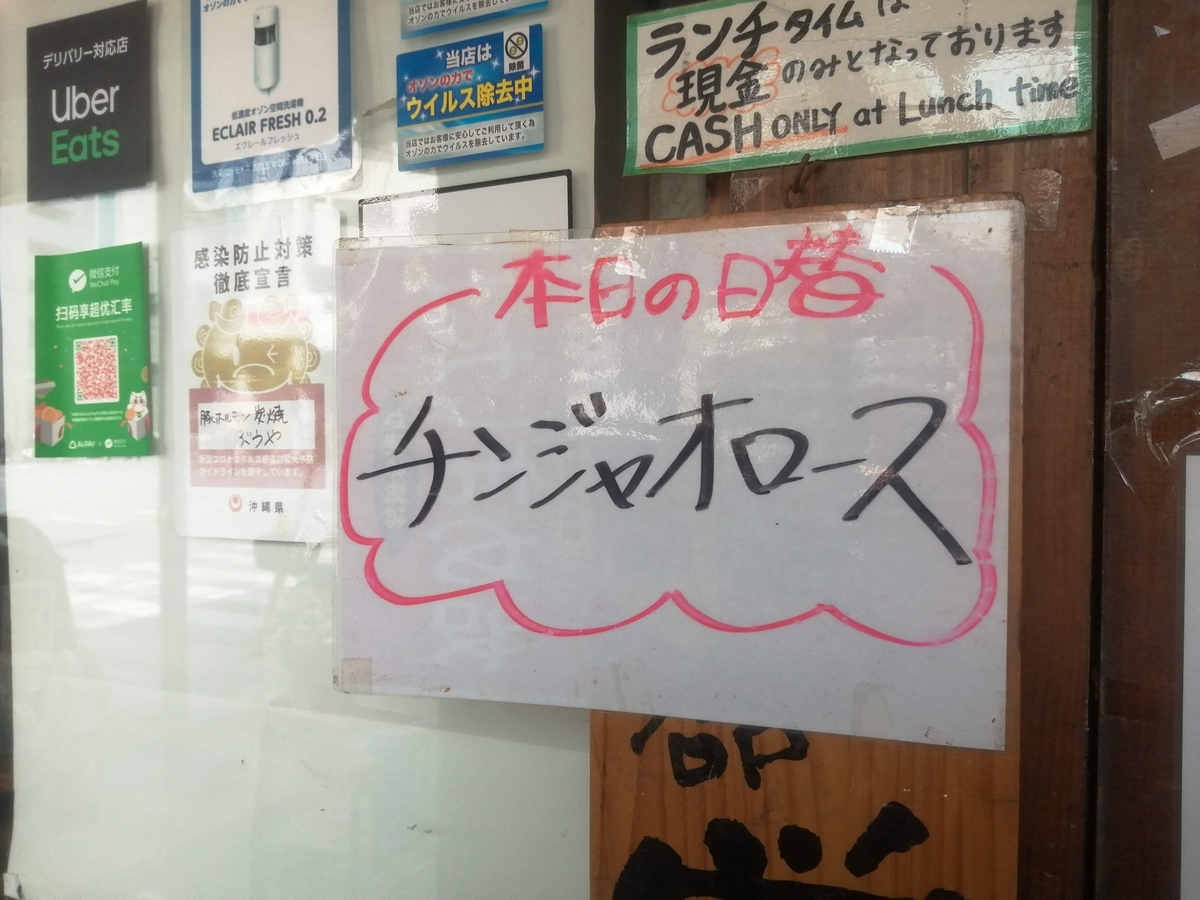 デリバリー対応店
Uber
Eats
低濃度オゾン空間洗濯機
ECLAIR FRESH 0.2
エクレールフレッシュ
当店は
オゾンの力で
ウイルス除去中
除菌
当店ではお客様に安心してご利用して頂く為
オゾンの力でウイルス除去しています。
ランチタイムは
現金のみとなっております
CASH ONLY at Lunch time
微信支付
WeChat Pay
扫码享超优汇率
感染防止対策
徹底宣言
豚ホルモン炭焼
沖縄県
本日の日替
チンジャオロース